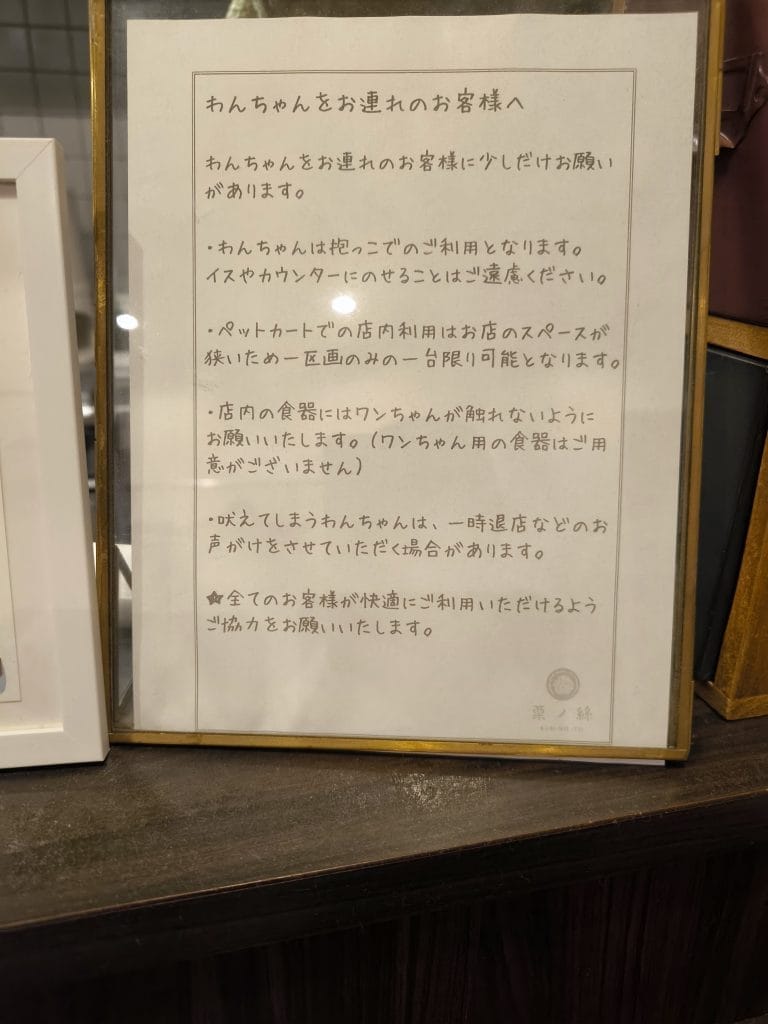 わんちゃんをお連れのお客様へ
わんちゃんをお連れのお客様に少しだけお願い
があります。
・わんちゃんは抱っこでのご利用となります。
イスやカウンターにのせることはご遠慮ください。
・ペットカートでの店内利用はお店のスペースが
狭いため一区画のみの一台限り可能となります。
・店内の食器にはワンちゃんが触れないように
お願いいたします。(ワンちゃん用の食器はご用
意がございません)
・吠えてしまうわんちゃんは、一時退店などのお
声がけをさせていただく場合があります。
★全てのお客様が快適にご利用いただけるよう
ご協力をお願いいたします。
栗ノ絲